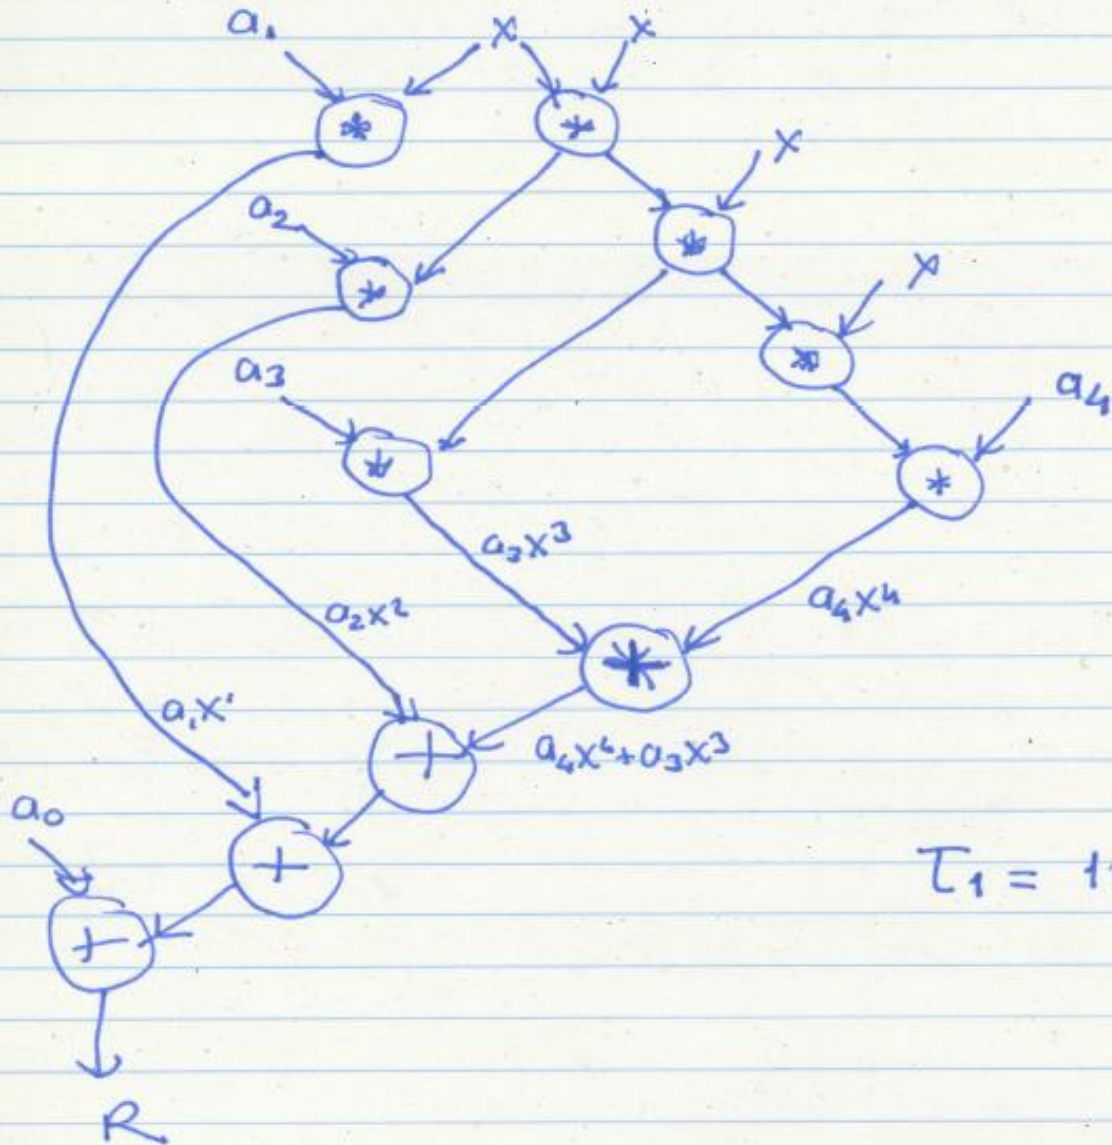 a₁ x x
*
*
x
a₂
*
*
x
a₃
*
a₄
*
*
a₃x³
a₂x²
a₄x⁴
*
a₁x¹
+
a₄x⁴+a₃x³
a₀
+
T₁ = 1
+
R